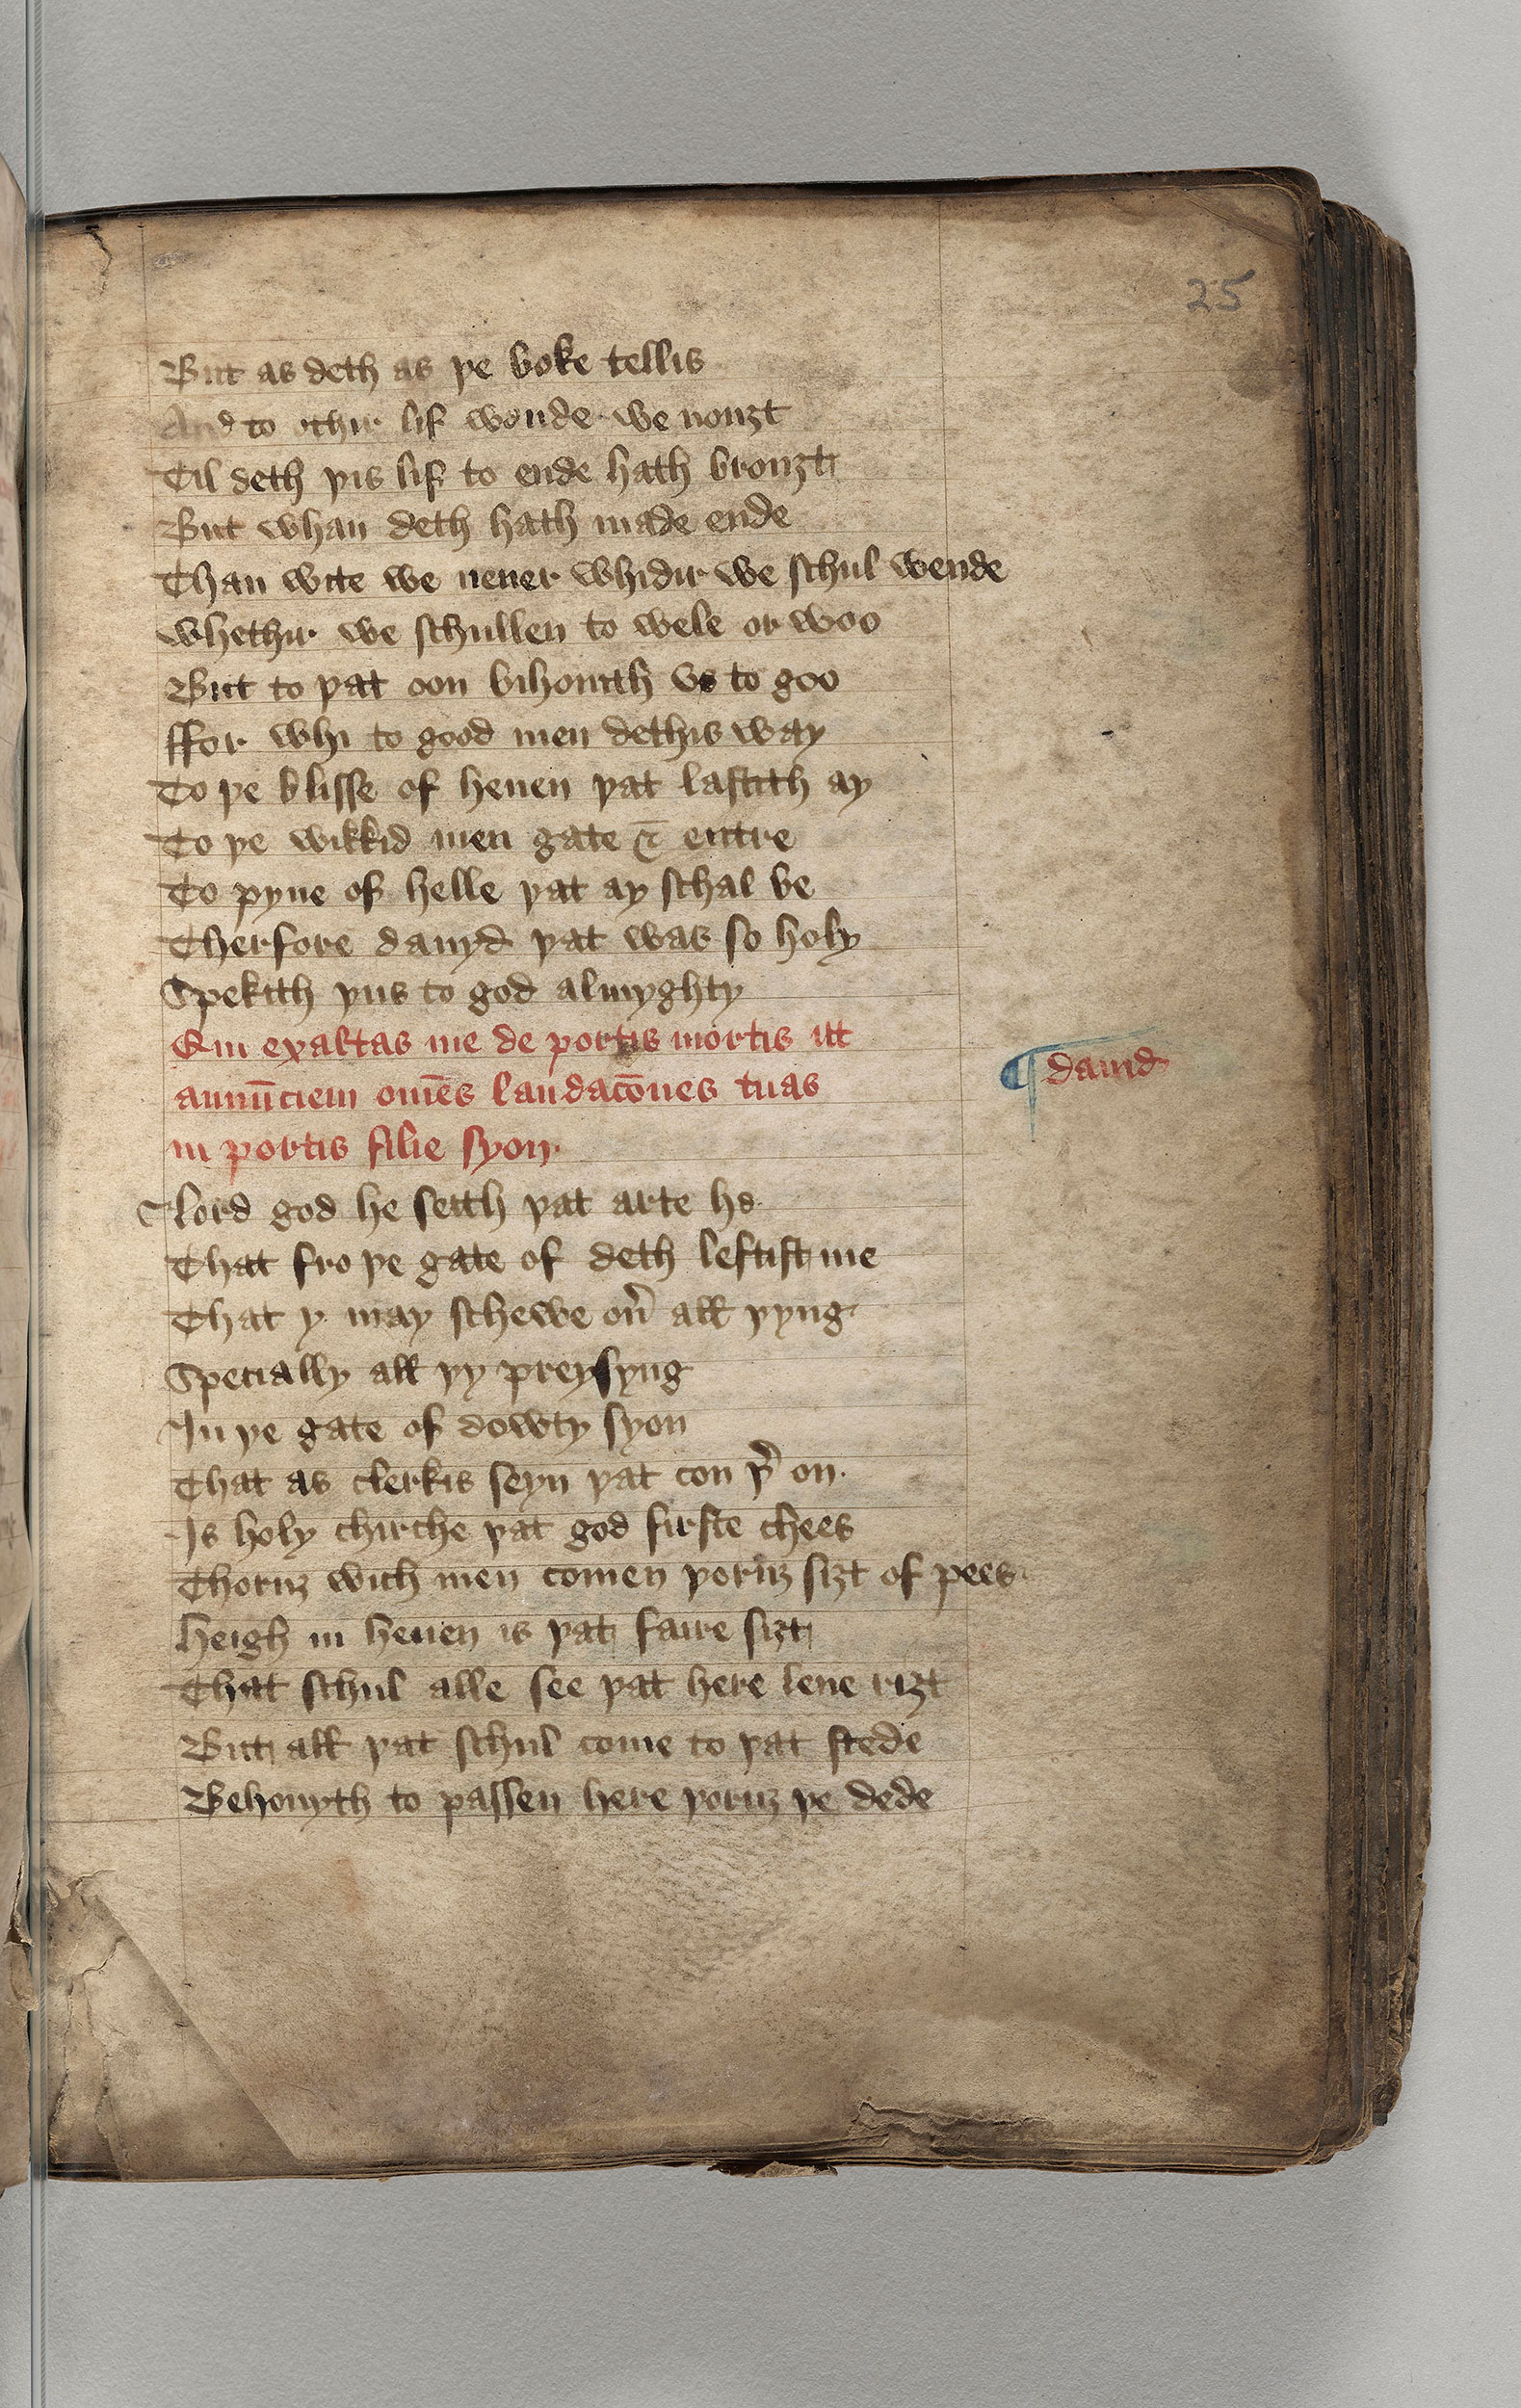 25
But as deth as þe boke tellis
And to othir lif wende we nouȝt
Til deth þis lif to ende hath brouȝt
But whan deth hath made ende
Than wite we neuer whidir we schul wende
Whethir we schullen to wele or woo
But to þat oon bihouith vs to goo
ffor whi to good men deth is way
To þe blisse of heuen þat lastith ay
To þe wikkid men gate & entre
To pyne of helle þat ay schal be
Therfore dauyd þat was so holy
Spekith þus to god almyghty
Qui exaltas me de portis mortis ut
annūciem om̄es laudac̄ones tuas
in portis filie syon.
¶ dauid
Lord god he seith þat arte he
That fro þe gate of deth leftist me
That y may schewe oủ all þyng
Specially all þy preysyng
In þe gate of dowty syon
That as clerkis seyn þat con þ̉ on.
Is holy chirche þat god firste chees
Thoruȝ wich men comen þoruȝ siȝt of pees
Heigh in heuen is þat faire siȝt
That schul alle see þat here leue riȝt
But all þat schul come to þat stede
Behouyth to passen here þoruȝ þe dede